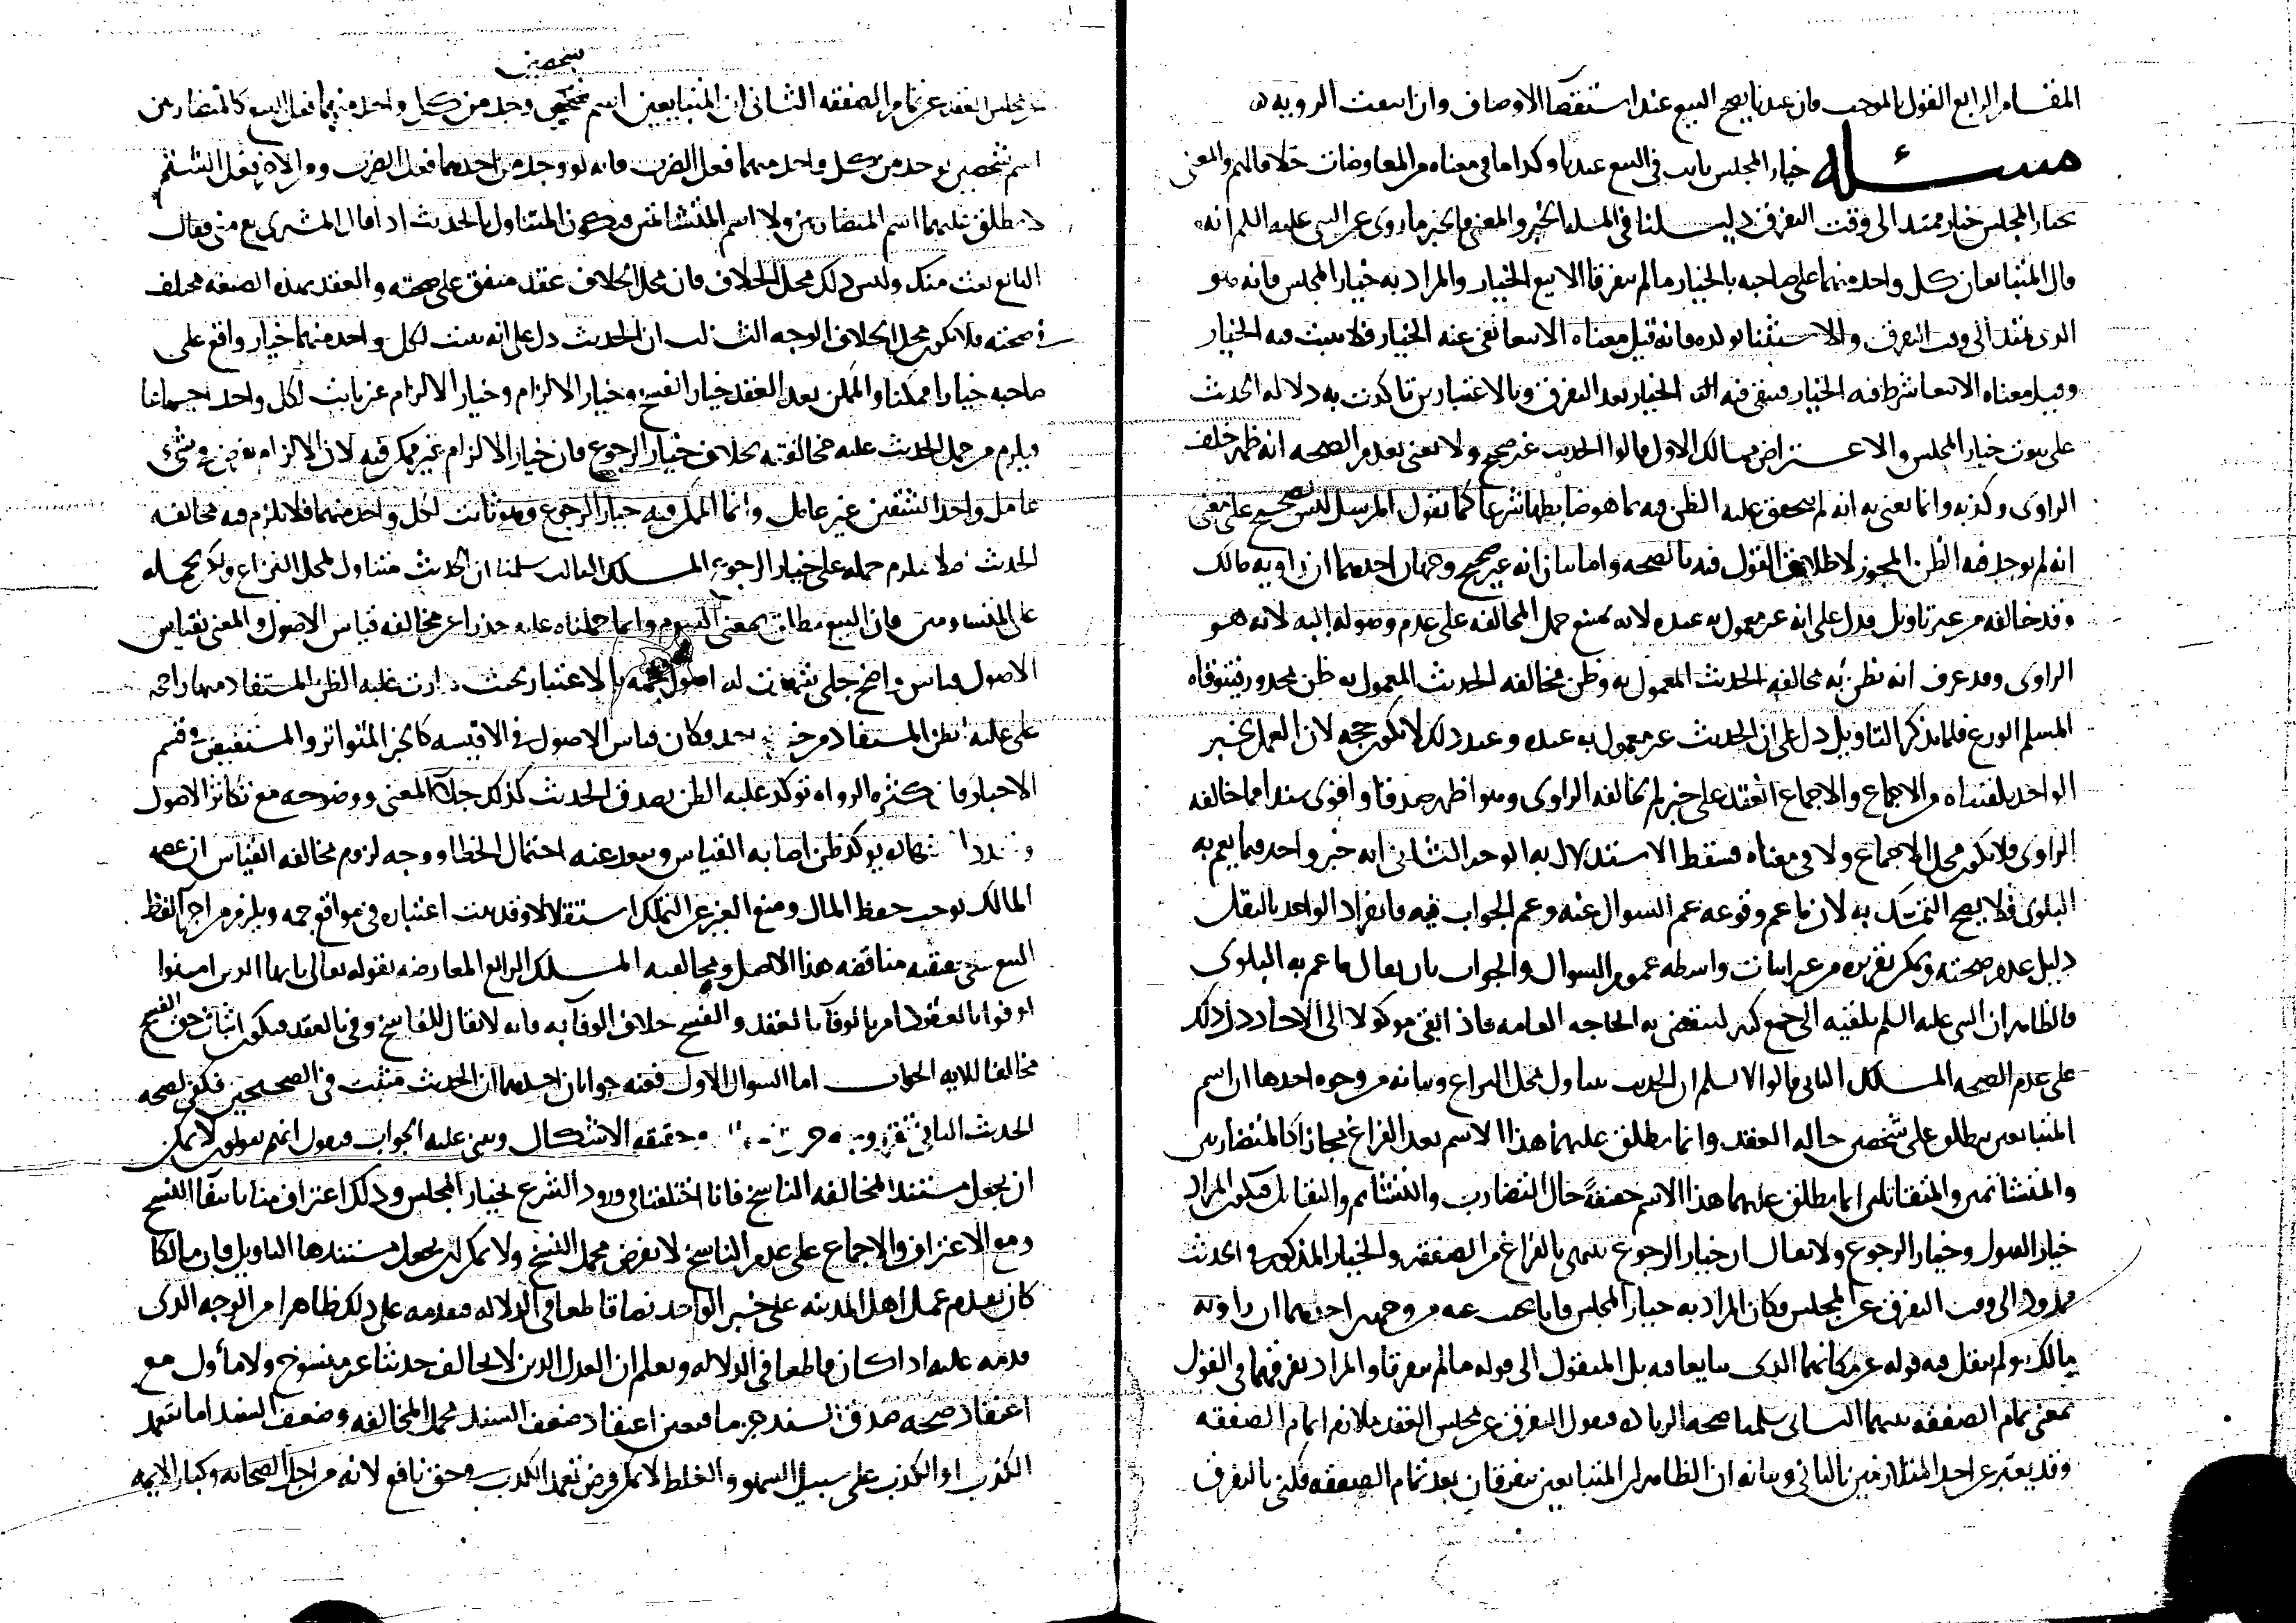 المقام الرابع القول بالموجب فان عندنا يصح البيع عند استقصا الاوصاف وان انتفت الرويه
مسئله خيار المجلس ثابت في البيع عندنا وكذا ما في معناه من المعاوضات خلافا لهم والمعنى
بخيار المجلس خيار ممتد الى وقت التفرق دليلنا في المسله الخبر والمعنى فالخبر ما روى عن النبي عليه السلم انه
قال المتبايعان كل واحد منهما على صاحبه بالخيار مالم يتفرقا الا بيع الخيار والمراد به خيار المجلس فانه هو
الذي يمتد الى وقت التفرق والاستثنا يولده فانه قيل معناه الا بيعا نفي عنه الخيار فلا يثبت فيه الخيار
وقيل معناه الا بيعا شرط فيه الخيار فيبقى فيه الخيار بعد التفرق وبالاعتبارين تاكدت به دلاله الحديث
على ثبوت خيار المجلس والاعتراض مسالك الاول قالوا الحديث غير صحيح ولا نعني بعدم الصحه انه ظهر خلف
الراوى وكذبه وانما نعنى به انه لم يتحقق غلبه الظن فيه بما هو ضابطها شرعا كما نقول المرسل ليس بصحيح على معنى
انه لم يوجد فيه الظن المجوز لاطلاق القول فيه بالصحه واما بيان انه غير صحيح وجهان احدهما ان راويه مالك
وقد خالفه من غير تاويل فدل على انه غير معمول به عنده لانه يمتنع حمل المخالفه على عدم وصوله اليه لانه هو
الراوى وقد عرف انه نظن به مخالفه الحديث المعمول به وظن مخالفه الحديث المعمول به ظن محذور فيتوقاه
المسلم الورع فلما لم يذكر التاويل دل على ان الحديث غير معمول به عنده وعند ذلك لا يكون حجه لان العمل بخبر
الواحد تلقيناه من الاجماع والاجماع انعقد على خبر لم يخالفه الراوى وهو اظهر صدقا واقوى سندا مما خالفه
الراوى فلا يكون محل الاجماع ولا في معناه فسقط الاستدلال به الوجه الثانى انه خبر واحد فيما يعم به
البلوى فلا يصح التمسك به لان ما عم وقوعه عم السوال عنه وعم الجواب فيه فانفراد الواحد بالنقل
دليل عدم صحته ويمكن تقريره من غير اثبات واسطه عموم السوال والجواب بان يقال ما عم به البلوى
فالظاهر ان النبى عليه السلم يلقيه الى جمع كثير لتنقضى به الحاجه العامه فاذا بقى موكولا الى الاحاد دل ذلك
على عدم الصحه المسلك الثانى قالوا لا نسلم ان الحديث يتناول محل النزاع وبيانه من وجوه احدها ان اسم
المتبايعين يطلق على شخصين حاله العقد وانما يطلق عليهما هذا الاسم بعد الفراغ مجازا كالمتضاربين
والمتشاتمين والمتقاتلين انما يطلق عليهما هذا الاسم حقيقة حال التضارب والتشاتم والتقاتل فيكون المراد
خيار القبول وخيار الرجوع ولا يقال ان خيار الرجوع ينتهى بالفراغ من الصفقه والخيار المذكور في الحديث
ممدود الى وقت التفرق عن المجلس فكان المراد به خيار المجلس فانا نجيب عنه من وجهين احدهما ان راويه
مالك ولم ينقل فيه قوله عن مكانهما الذى تبايعا فيه بل المنقول الى قوله مالم يتفرقا والمراد تفرقهما في القول
بمعنى تمام الصفقه بينهما الثانى سلمنا صحه الزياده فنقول التفرق عن مجلس العقد يلازم اتمام الصفقه
وقد يعبر عن احد المتلازمين بالثانى وبيانه ان الظاهر ان المتبايعين يتفرقان بعد تمام الصفقه فكنى بالتفرق
شخصين
عن مجلس العقد عن تمام الصفقه الثانى ان المتبايعين اسم وجد من كل واحد منهما فعل البيع كالمتضاربين
اسم شخصين يوجد من كل واحد منهما فعل الضرب فانه لو وجد من احدهما فعل الضرب ومن الاخر فعل الشتم
لا يطلق عليهما اسم المتضاربين ولا اسم المتشاتمين فيكون المتناول بالحديث اذا قال المشترى بع منى فقال
البائع بعت منك وليس ذلك محل الخلاف فان محل الخلاف عقد متفق على صحته والعقد بهذه الصفه مختلف
في صحته فلا يكون محل الخلاف الوجه الثالث ان الحديث دل على انه يثبت لكل واحد منهما خيار واقع على
صاحبه خيارا ممكنا والممكن بعد العقد خيار الفسخ وخيار الالزام وخيار الالزام غير ثابت لكل واحد اجماعا
ويلزم من حمل الحديث عليه مخالفته بخلاف خيار الرجوع فان خيار الالزام غير ممكن فيه لان الالزام
واحد الشقين غير عامل وانما الممكن فيه خيار الرجوع وهو ثابت لكل واحد منهما فلا يلزم فيه مخالفه
الحديث فلا يلزم حمله على خيار الرجوع المسلك الثالث سلمنا ان الحديث متناول لمحل النزاع ولكن نحمله
على المتساومين فان البيع يطلق بمعنى السوم وانما حملناه عليه حذرا عن مخالفه قياس الاصول والمعنى بقياس
الاصول قياس واضح جلى شهدت له اصول جمه بالاعتبار بحيث زادت غلبه الظن المستفاد منها راجحه
على غلبه الظن المستفاد من خبر واحد وكان قياس الاصول في الاقيسه كالخبر المتواتر والمستفيض في قسم
الاخبار فان كثره الرواه توكد غلبه الظن بصدق الحديث كذلك جلا المعنى ووضوحه مع تكاثر الاصول
يوكد ظن اصابه القياس ويبعد عنه احتمال الخطا ووجه لزوم مخالفه القياس ان عصمه
المالك توجب حفظ المال ومنع الغير عن التملك استقلالا وقد ثبت اعتباره في مواقع جمه ويلزم من اجرا لفظ
البيع على حقيقته مناقضه هذا الاصل ومخالفته المسلك الرابع المعارضه بقوله تعالى يايها الذين امنوا
اوفوا بالعقود امر بالوفآ بالعقد والفسخ خلاف الوفآ به فانه لا يقال للفاسخ وفى بالعقد فيكون اثبات حق الفسخ
مخالفا للايه الجواب اما السوال الاول فعنه جوابان احدهما ان الحديث مثبت في الصحيحين فكفى بصحه
الحديث الثانى حقيقه الاشكال ونبنى عليه الجواب فنقول انتم تقولون لا يمكن
ان يجعل مستند المخالفه الناسخ فانا اختلفنا في ورود الشرع بخيار المجلس وذلك اعتراف منا بانتفآ النسخ
ومع الاعتراف والاجماع على عدم الناسخ لا يفرض محمل النسخ ولا يمكن ان يجعل مستندها التاويل فان مالكا
كان يقدم عمل اهل المدينه على خبر الواحد نصا قاطعا في الدلاله فتقدمه على ذلك ظاهرا من الوجه الذى
قدمه عليه اذا كان قاطعا في الدلاله ونعلم ان العدل الدين لا يخالف حديثا غير منسوخ ولا مأول مع
اعتقاد صحه صدق السند جزما فتعين اعتقاد ضعف السند محمل المخالفه وضعف السند اما بتعمد
الكذب او الكذب على سبيل السهو والغلط لا يمكن فرض تعمد الكذب في حق نافع لانه من اجل الصحابه وكبار الايمه